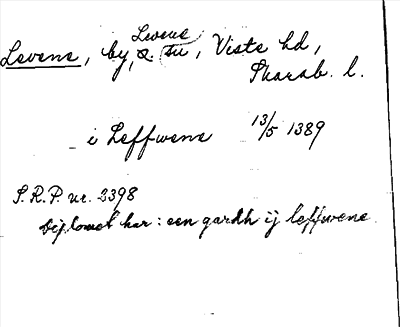 Levene
Levene, by, o. su, Viste hd,
Skarab. l.
i Leffwene 13/5 1389
S.R.P. nr. 2398
Diplomet har: een gardh ij leffwene.